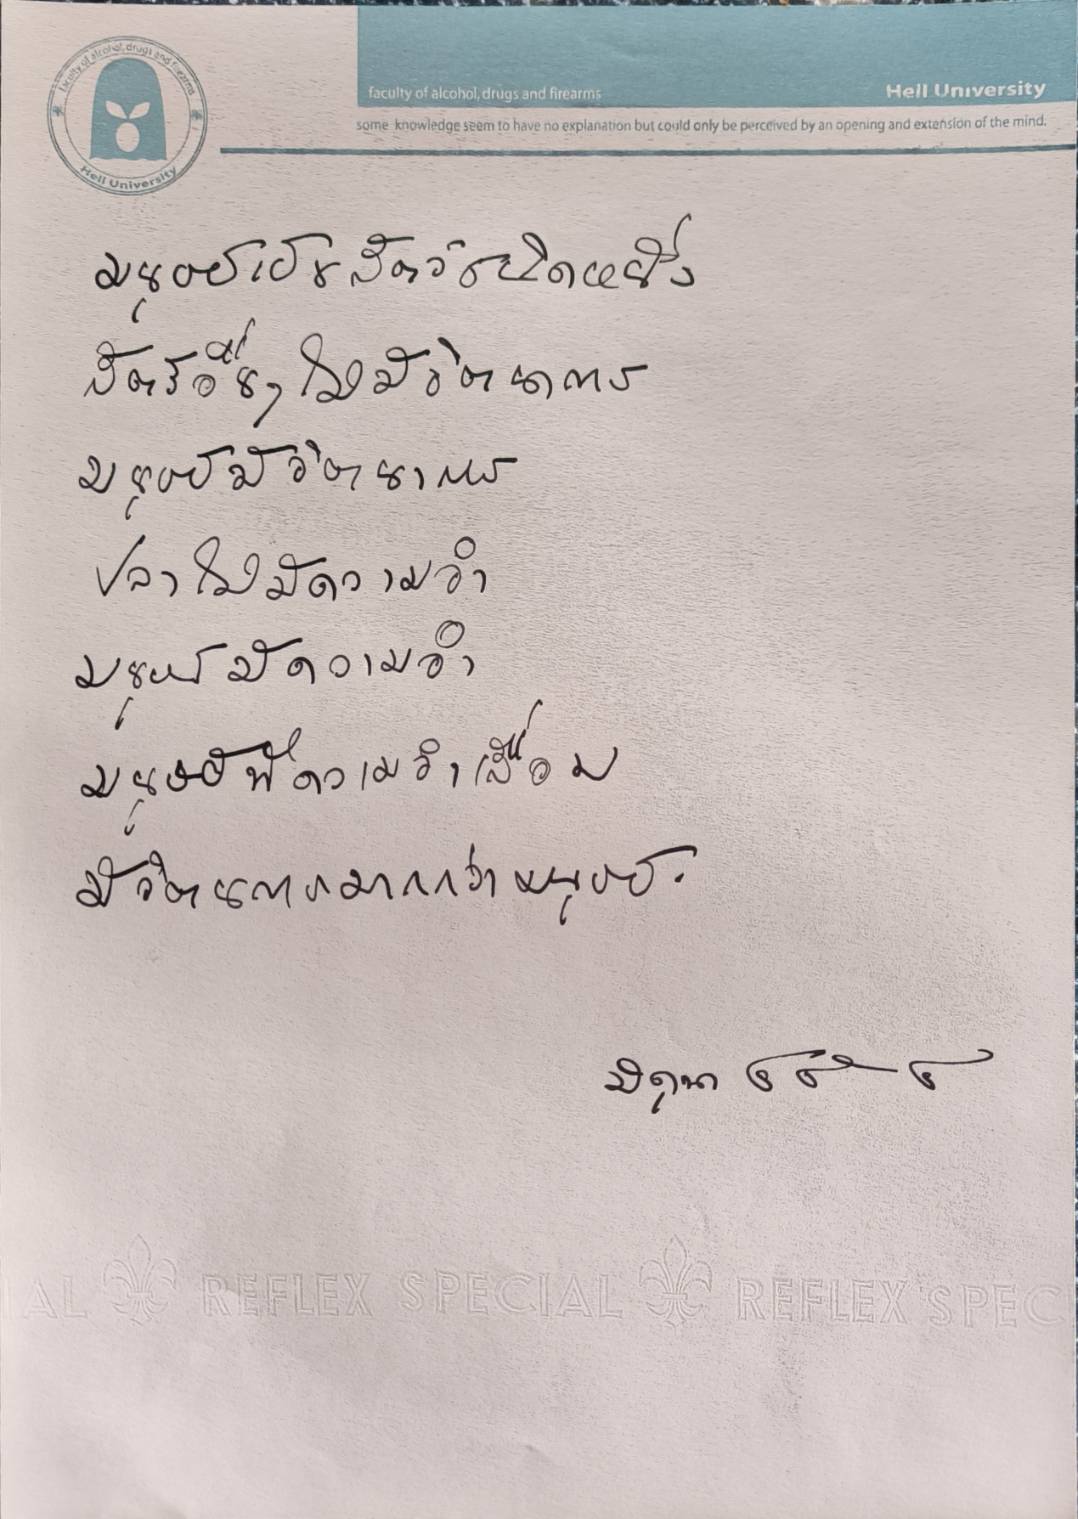 faculty of alcohol, drugs and firearms
Hell University
faculty of alcohol, drugs and firearms
Hell University
some knowledge seem to have no explanation but could only be perceived by an opening and extension of the mind.
มนุษย์เป็นสัตว์ชนิดหนึ่ง
สัตว์อื่นๆ ไม่มีจินตนาการ
มนุษย์มีจินตนาการ
ปลาไม่มีความจำ
มนุษย์มีความจำ
มนุษย์ที่ความจำเสื่อม
มีจินตนาการมากกว่ามนุษย์.
มิถุนา
REFLEX SPECIAL REFLEX SPEC